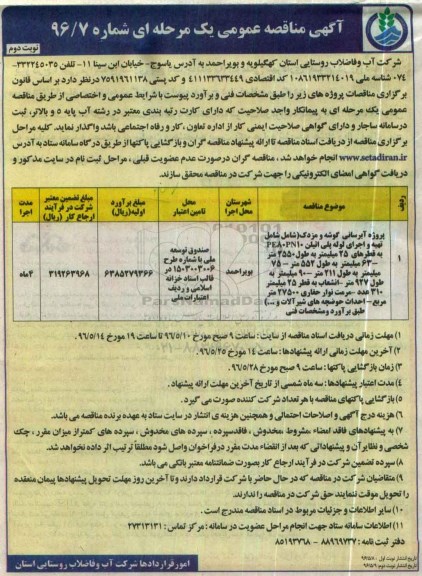 آگهی مناقصه عمومی یک مرحله ای شماره ۹۶/۷
نوبت دوم
شرکت آب وفاضلاب روستایی استان کهگیلویه و بویراحمد به آدرس یاسوج- خیابان ابن سینا ۱۱- تلفن ۳۳۲۴۵۰۳۵-
۰۷۴ شناسه ملی ۱۰۸۶۱۹۳۳۲۱۴۰۱۹ کد اقتصادی ۴۱۱۱۳۳۶۳۳۴۴۹ و کد پستی ۷۵۹۱۹۶۱۱۳۸ درنظر دارد بر اساس قانون
برگزاری مناقصات پروژه های زیر را طبق مشخصات فنی و برآورد پیوست با شرایط عمومی و اختصاصی از طریق مناقصه
عمومی یک مرحله ای به پیمانکار واجد صلاحیت که دارای کارت رتبه بندی معتبر در رشته آب پایه ۵ و بالاتر، ثبت
درسامانه ساجار و دارای گواهی صلاحیت ایمنی کار از اداره تعاون ،کار و رفاه اجتماعی باشد واگذار نماید. کلیه مراحل
برگزاری مناقصه از دریافت اسناد مناقصه تا ارائه پیشنهاد مناقصه گران و بازگشایی پاکتها از طریق درگاه سامانه ستاد به آدرس
www.setadiran.ir انجام خواهد شد ، مناقصه گران درصورت عدم عضویت قبلی ، مراحل ثبت نام در سایت مذکور و
دریافت گواهی امضای الکترونیکی را جهت شرکت در مناقصه محقق سازند.
ردیف
موضوع مناقصه
شهرستان محل اجرا
محل تامین اعتبار
مبلغ برآورد اولیه(ریال)
مبلغ تضمین معتبر شرکت در فرآیند ارجاع کار (ریال)
مدت اجرا
۱
پروژه آبرسانی گوشه و مزدک(شامل شامل
تهیه و اجرای لوله پلی اتیلن PE۸۰PN۱۰
به قطرهای ۲۵ میلیمتر به طول ۳۵۵۰ متر
-۶۳ میلیمتر به طول ۵۵۲ متر – ۷۵
میلیمتر به طول ۲۱۱ متر –۹۰ میلیمتر به
طول ۹۲۷ متر –انشعاب به قطر ۲۵ میلیمتر
۳۱۰ عدد –مرمت نوار حفاری ۲۷۵۰۰ متر
مربع – احداث حوضچه های شیرآلات و ...)
طبق برآورد ومشخصات فنی
بویراحمد
صندوق توسعه
ملی با شماره طرح
۱۵۰۳۰۰۳۰۰۶ در
قالب اسناد خزانه
اسلامی و ردیف
اعتبارات ملی
۶۳۸۵۲۷۹۳۶۶
۳۱۹۲۶۳۹۶۸
۴ماه
۱) مهلت زمانی دریافت اسناد مناقصه از سایت : ساعت ۹ صبح مورخ ۹۶/۵/۱۰ تا ساعت ۱۹ مورخ ۹۶/۵/۱۴.
۲) آخرین مهلت زمانی ارائه پیشنهادها : ساعت ۱۴ مورخ ۹۶/۵/۲۵.
۳) زمان بازگشایی پاکتها: ساعت ۹ صبح مورخ ۹۶/۵/۲۸.
۴) مدت اعتبار پیشنهادها : سه ماه شمسی از تاریخ آخرین مهلت ارائه پیشنهاد .
۵) بازگشایی پاکتهای مناقصه با هر تعداد شرکت کننده صورت می گیرد .
۶) هزینه درج آگهی و اصلاحات احتمالی و همچنین هزینه ی انتشار در سایت ستاد به عهده برنده مناقصه می باشد.
۷) به پیشنهادهای فاقد امضاء مشروط ،مخدوش ، فاقدسپرده ، سپرده های مخدوش ، سپرده های کمتراز میزان مقرر ، چک
شخصی و نظایر آن و پیشنهاداتی که بعد از انقضاء مدت مقرر درفراخوان واصل شود مطلقاً ترتیب اثر داده نخواهد شد.
۸) سپرده تضمین شرکت در فرآیند ارجاع کار بصورت ضمانتنامه معتبر بانکی می باشد.
۹) متقاضیان شرکت در مناقصه که در حال حاضر با شرکت قرارداد دارند و تا آخرین روز مهلت تحویل پیشنهادها پیمان منعقده
را تحویل موقت ننمایند حق شرکت در مناقصه را ندارند.
۱۰) سایر اطلاعات و جزئیات مربوط در اسناد مناقصه مندرج است .
۱۱) اطلاعات سامانه ستاد جهت انجام مراحل عضویت در سامانه : مرکز تماس : ۲۷۳۱۳۱۳۱
دفتر ثبت نامه : ۸۸۹۶۹۷۳۷ - ۸۵۱۹۳۷۶۸
تاریخ انتشار نوبت اول : ۹۶/۵/۸
تاریخ انتشار نوبت دوم ۹۶/۵/۹
امور قراردادها شرکت آب وفاضلاب روستایی استان